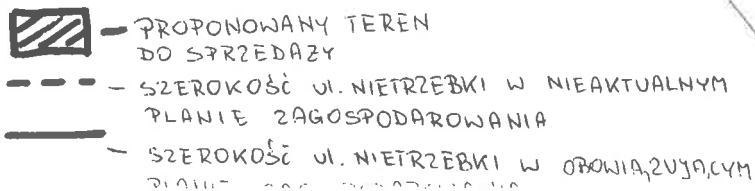 PROPONOWANY TEREN
DO SPRZEDAŻY
SZEROKOŚĆ ul. NIETRZEBKI W NIEAKTUALNYM
PLANIE ZAGOSPODAROWANIA
SZEROKOŚĆ ul. NIETRZEBKI W OBOWIĄZUJĄCYM